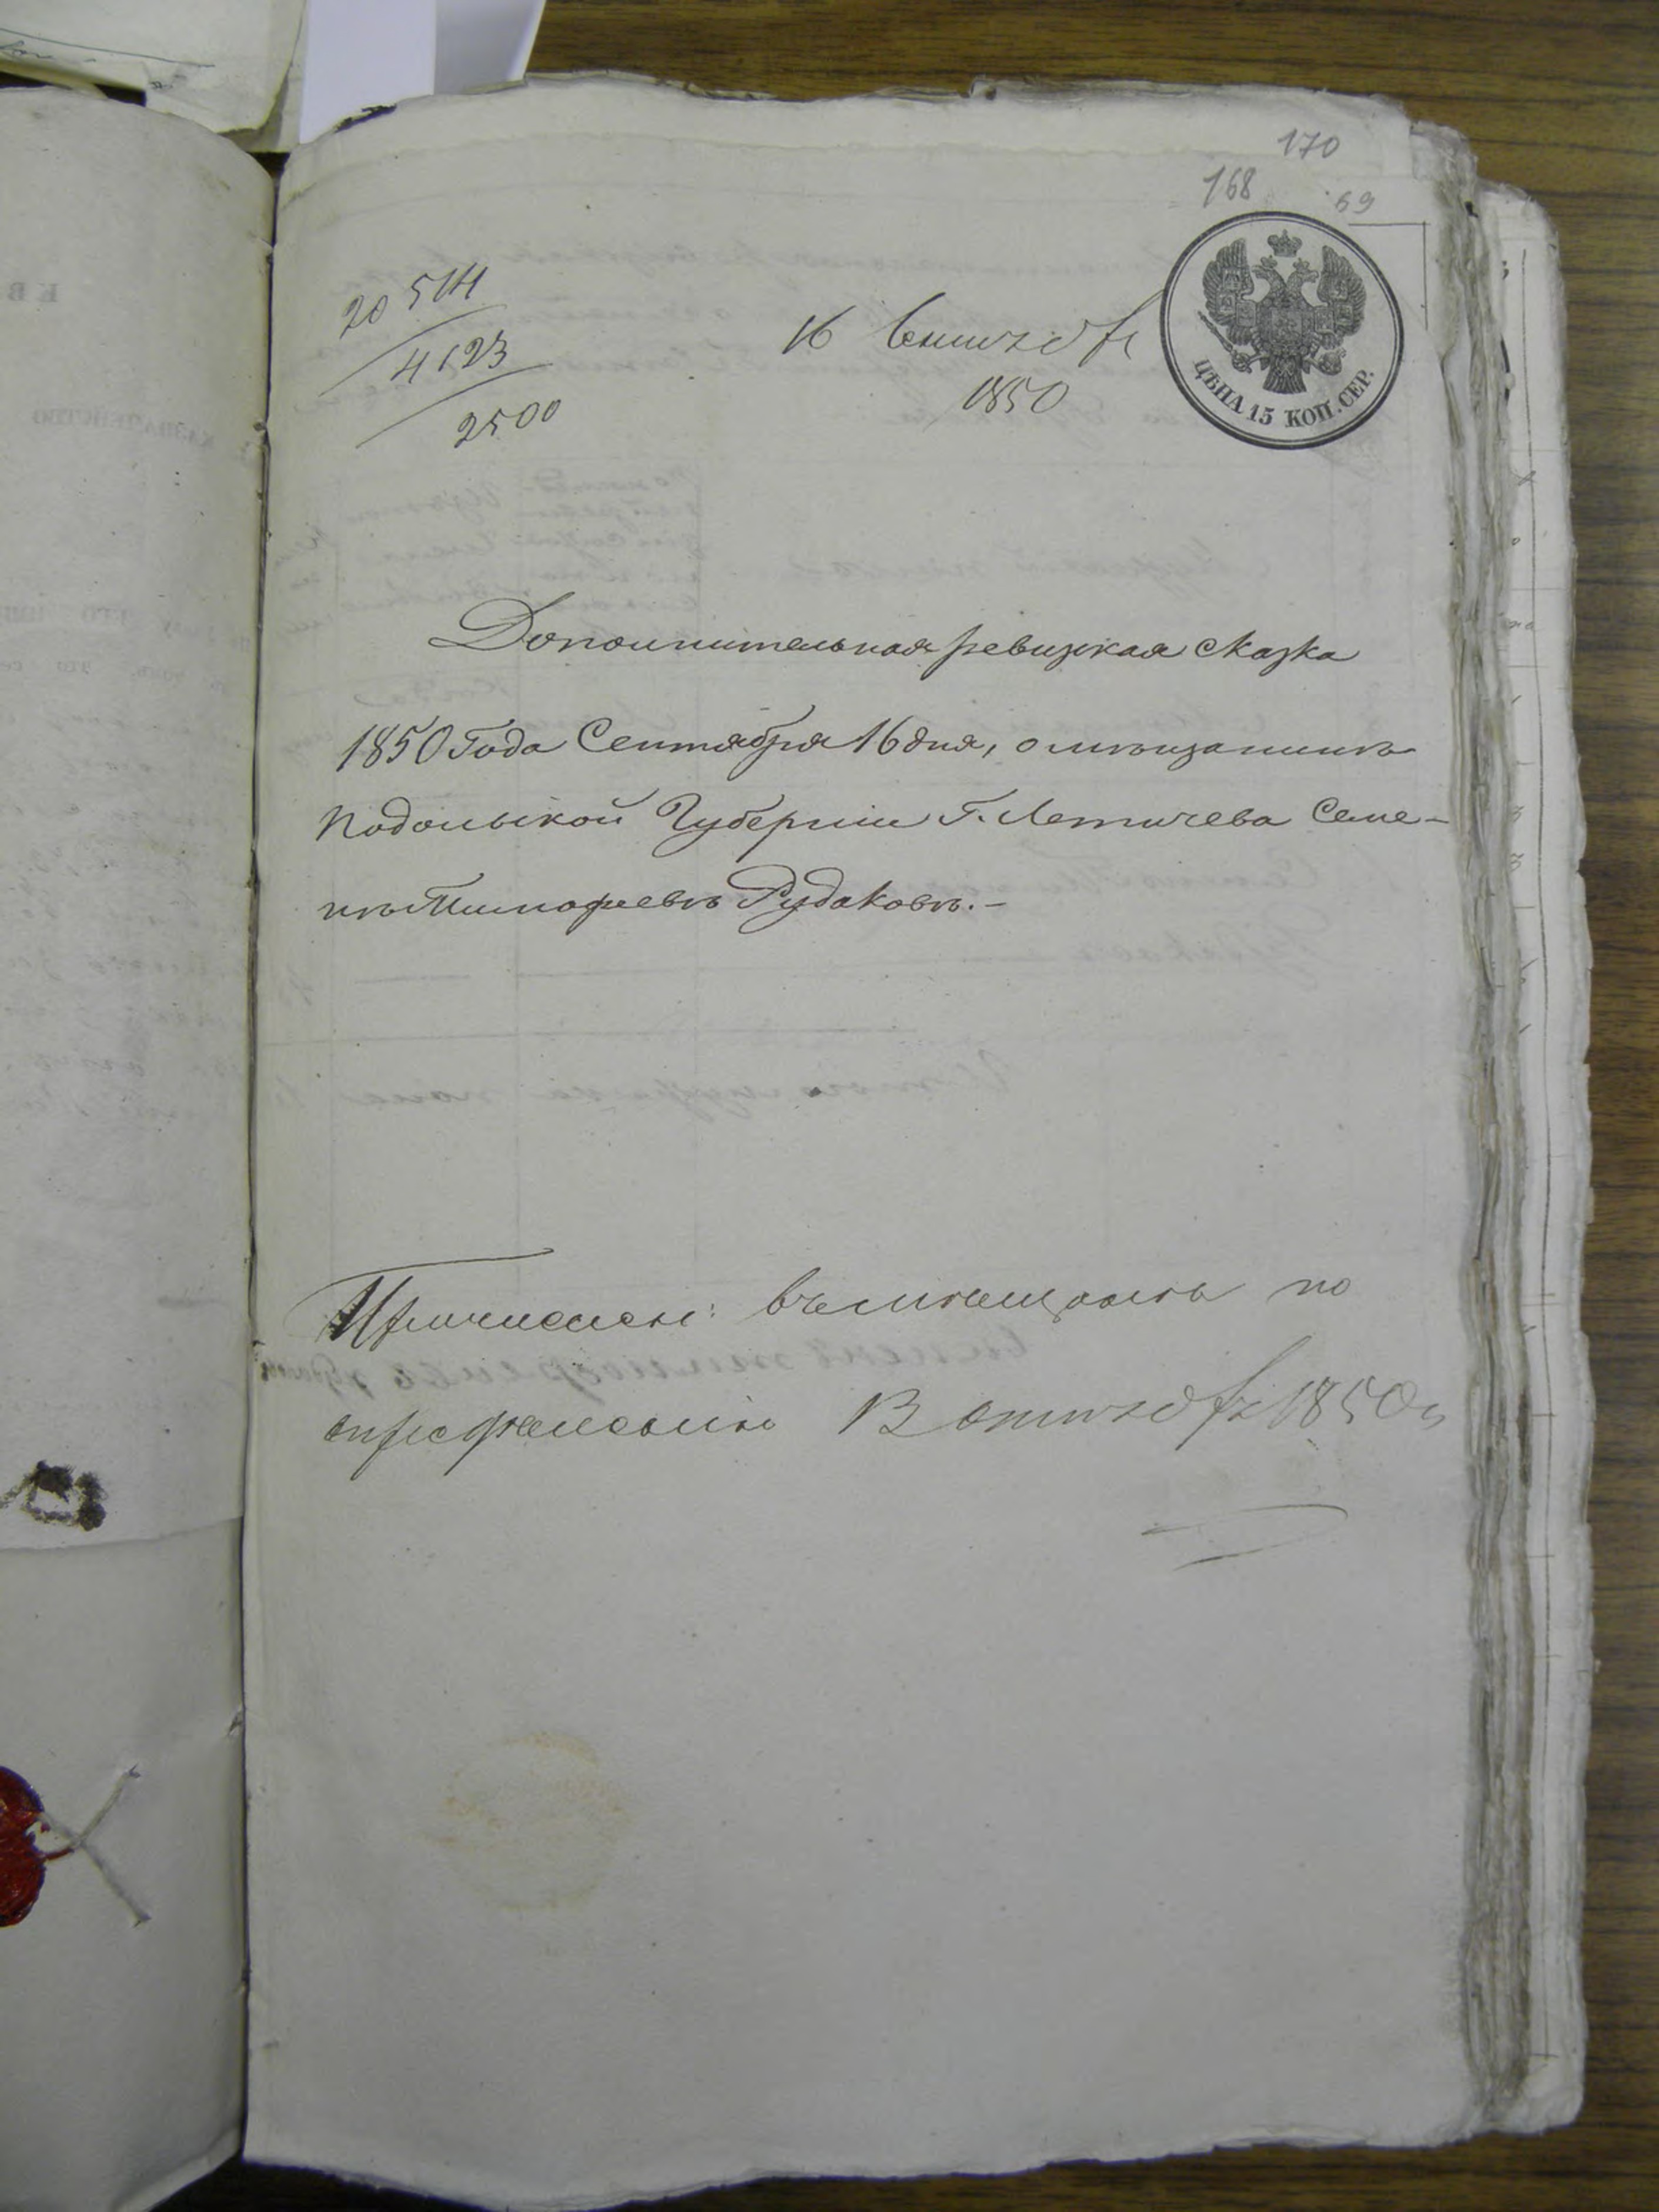 170
168
69
20514
4123
2500
16 Сентября
1850
ЦѢНА 15 КОП. СЕР.
Дополнительная ревизская сказка
1850 года Сентября 16 дня, о мѣщанинѣ
Подольской Губерніи Г. Летичева Семе-
нѣ Тимофѣевѣ Рудаковѣ.–
Причисленъ: въ мѣщане по
опредѣленію 1850